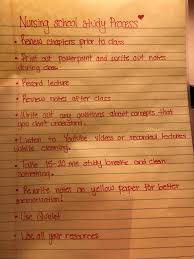 Nursing school study Process ♥
• Review chapters prior to class
• Print out powerpoint and write out notes
during class.
• Record lecture
• Review notes after class
• Write out any questions about concepts that
you don't understand.
• Listen to Youtube videos or recorded lectures
while cleaning.
• Take 15-20 min study breaks and clean
something.
• Rewrite notes on yellow paper for better
memorization!
• Use Quizlet
• Use all your resources